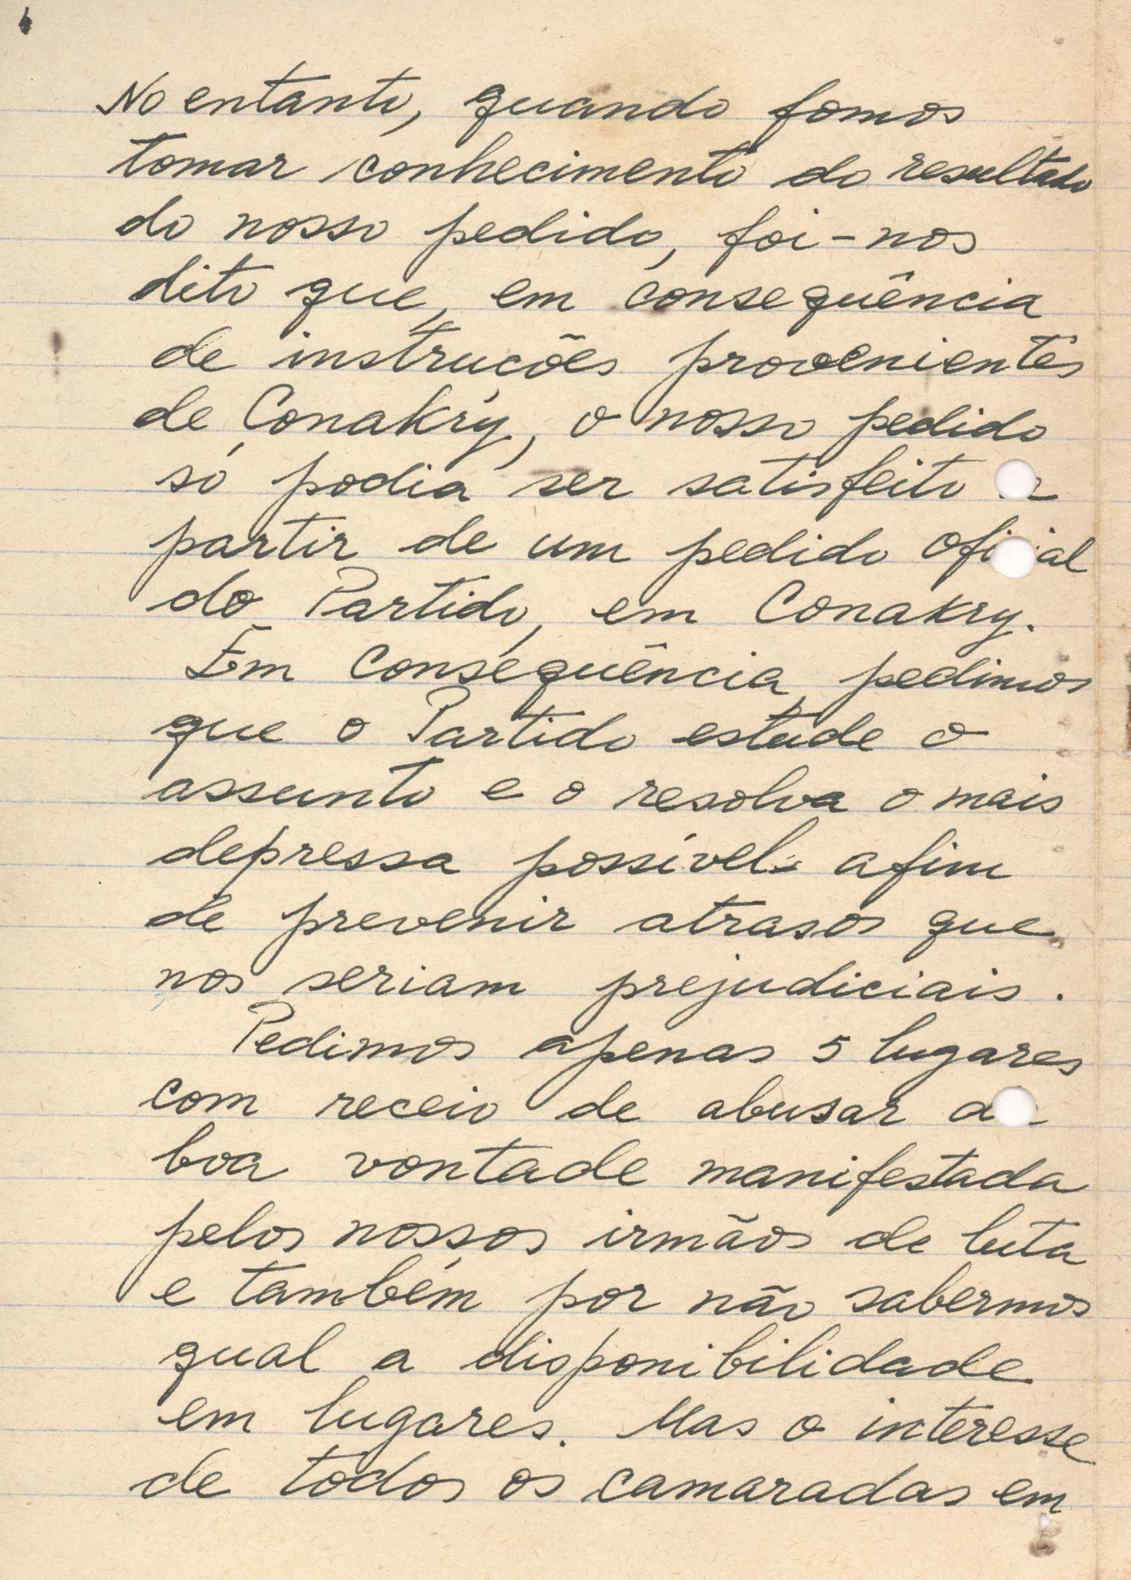 No entanto, quando fomos
tomar conhecimento do resultado
do nosso pedido, foi-nos
dito que, em consequência
de instrucões provenientes
de Conakry, o nosso pedido
só podia ser satisfeito a
partir de um pedido oficial
do Partido, em Conakry.
Em consequência, pedimos
que o Partido estude o
assunto e o resolva o mais
depressa possível afim
de prevenir atrasos que
nos seriam prejudiciais.
Pedimos apenas 5 lugares
com receio de abusar da
boa vontade manifestada
pelos nossos irmãos de luta
e também por não sabermos
qual a disponibilidade
em lugares. Mas o interesse
de todos os camaradas em